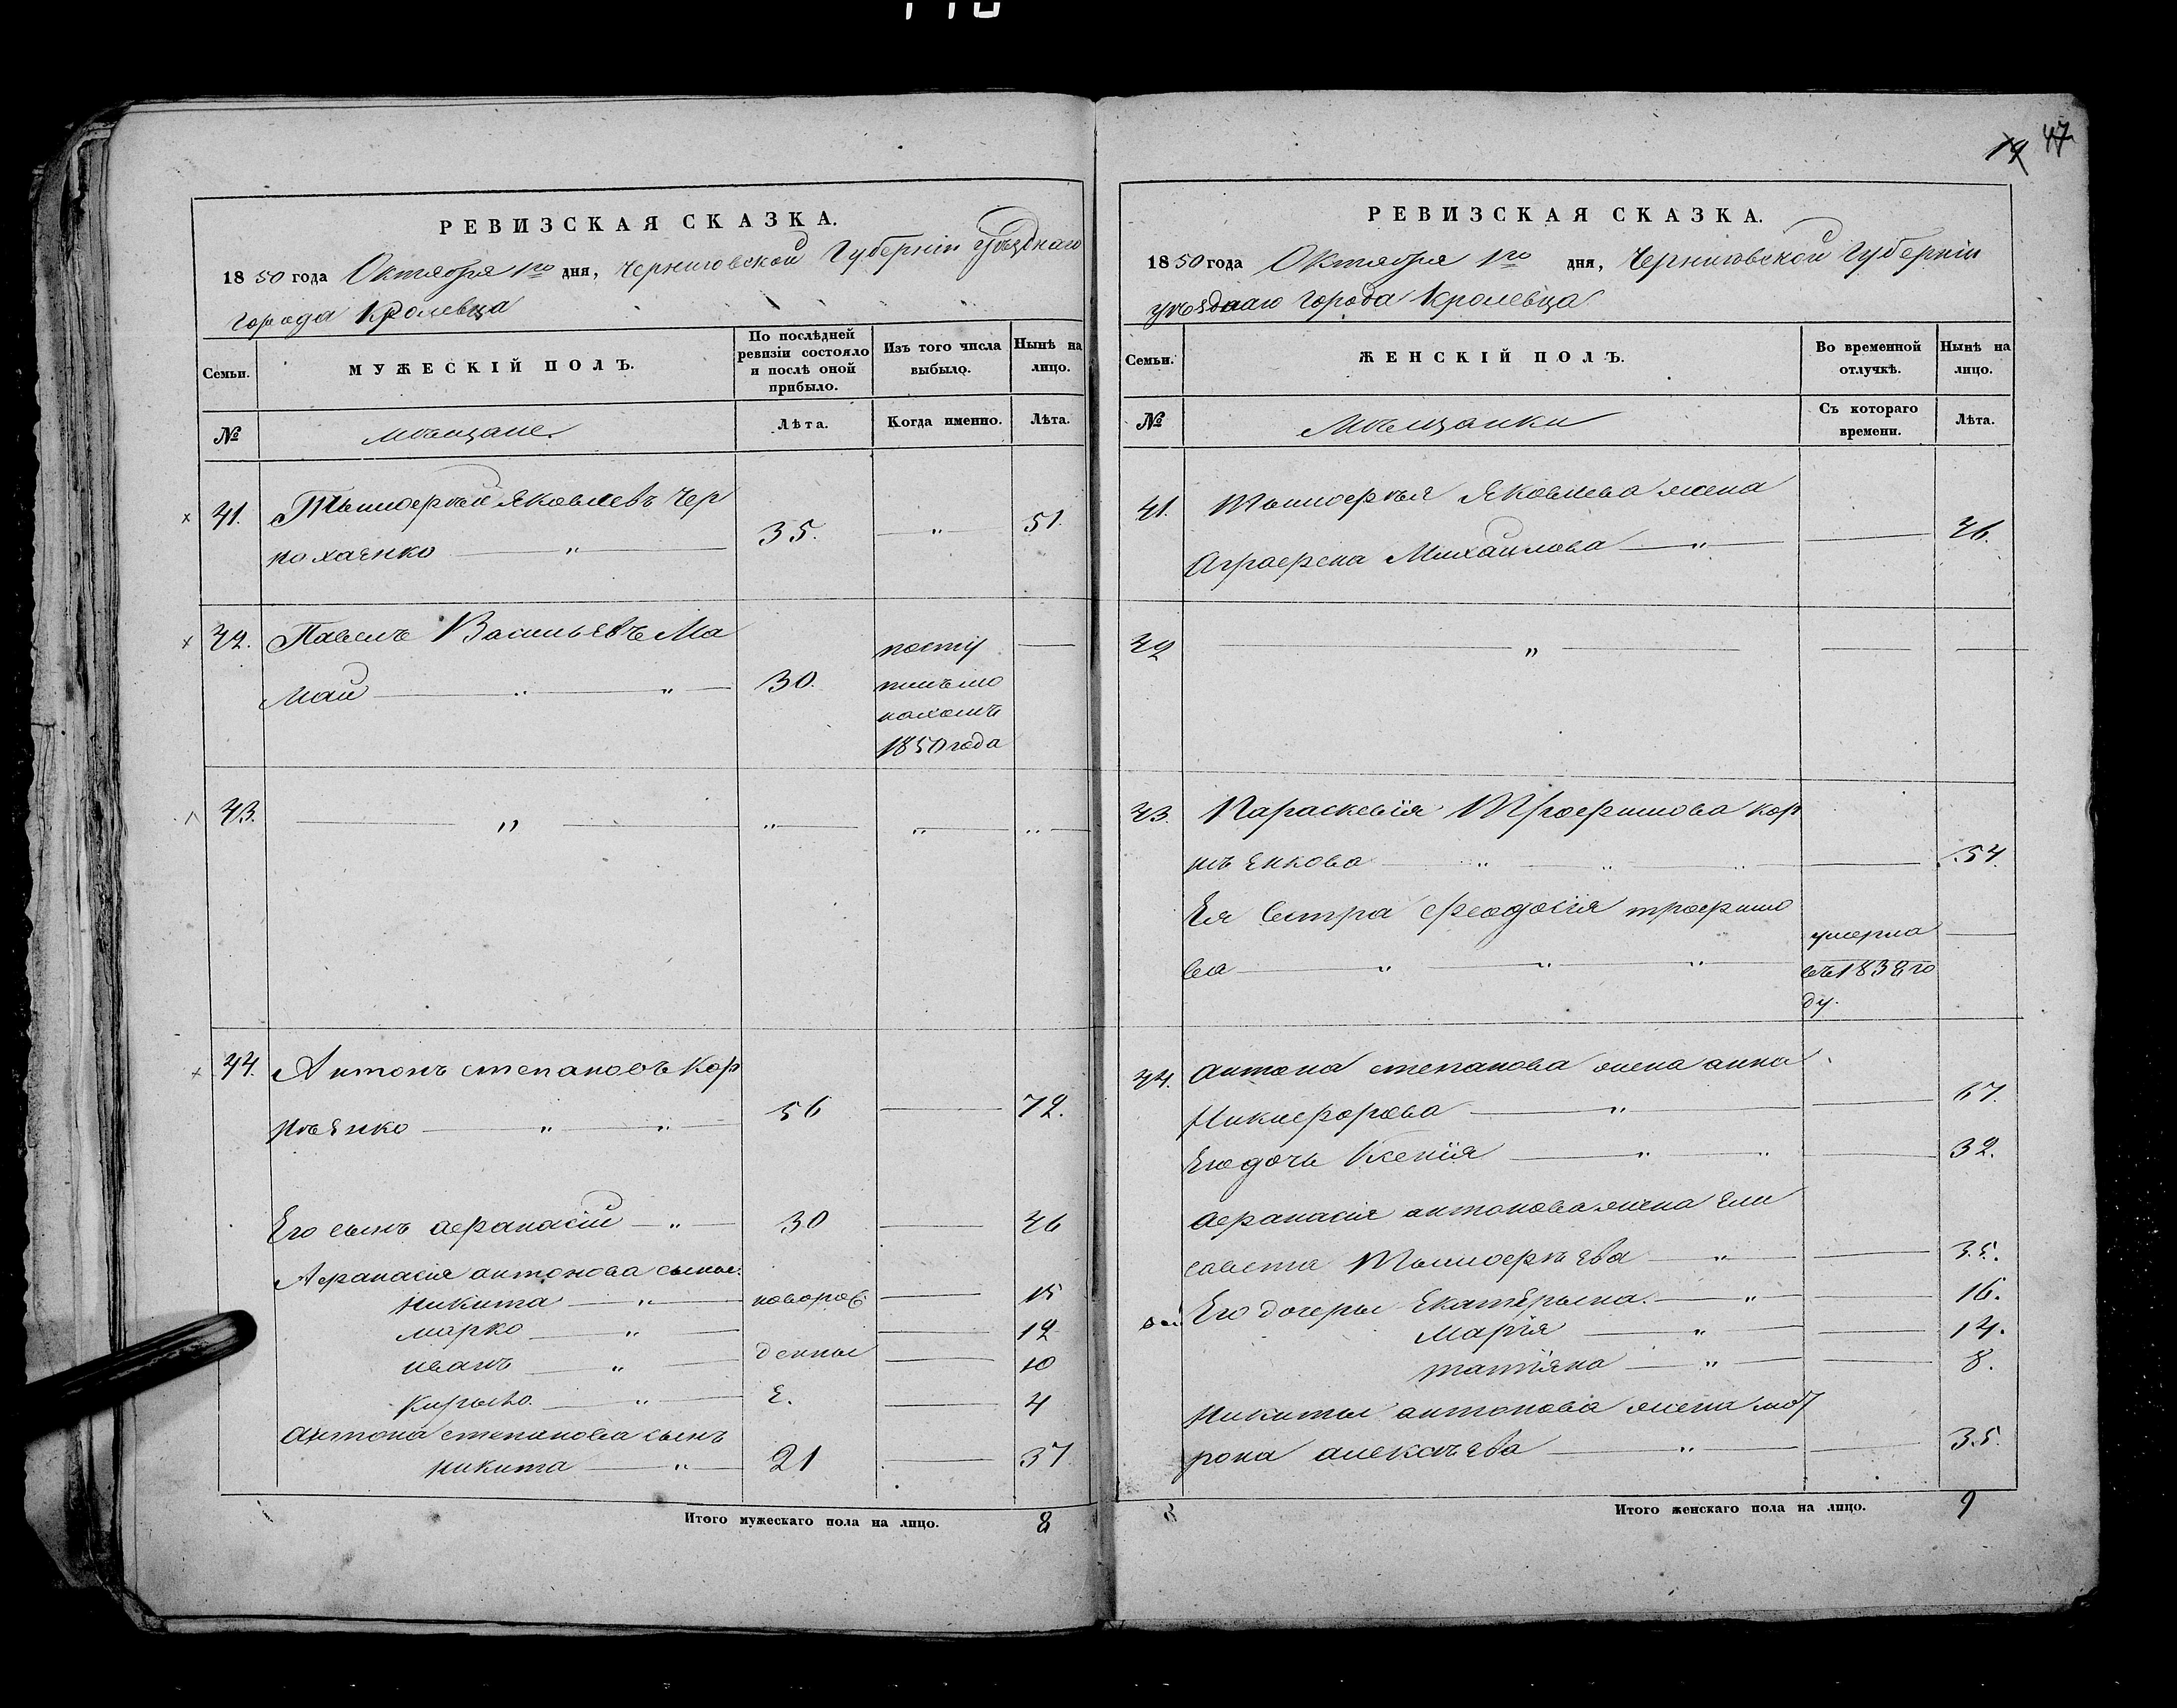 19 47
РЕВИЗСКАЯ СКАЗКА.
1850 года Октября 1го дня, Черниговской Губерніи уѣзднаго
города Кролевца
Семьи.
МУЖЕСКІЙ ПОЛЪ.
По послѣдней
ревизіи состояло
и послѣ оной
прибыло.
Изъ того числа
выбыло.
Нынѣ на
лицо.
№
мѣщане.
Лѣта.
Когда именно.
Лѣта.
41. Тимофѣй Яковлевъ Чер
35. „ 51.
42. Павелъ Васильевъ Ма
май „ „ 30.
посту
1850 года
43. „ „ „ „
44. Антонъ степановъ Кор
нѣенко „ „ 56 72.
Его сынъ афанасій „ 30 46
Афанасія антонова сынье:
никита „ новорож 15
марко „ 12
иванъ „ денные 10
Кирыло „ Е. 4
Антона степанова сынъ
никита „ 21 37
Итого мужескаго пола на лицо. 8
РЕВИЗСКАЯ СКАЗКА.
1850 года Октября 1го дня, Черниговской Губерніи
уѣзднаго города Кролевца
Семьи.
ЖЕНСКІЙ ПОЛЪ.
Во временной
отлучкѣ.
Нынѣ на
лицо.
№
Мѣщанки
Съ котораго
времени.
Лѣта.
41. Тимофѣя Яковлева жена
Аграфена Михайлова „ 46.
42 „
43. Параскевія Трофимова Кор
нѣенкова „ „ „ 54.
Ея Сестра Феодосія трофимо
ва „ „ „
умерла
въ 1838 го
ду.
44. Антона степанова жена анна
Никифорова „ 67.
Его дочь Ксенія „ „ 32.
Афанасія антонова жена Ели
савета Тимофѣева „ 35.
Его дочеры Екатерына „ 16.
Марія „ 14.
татіяна „ 8.
Никиты антонова жена мот
рона алексѣева „ 35.
Итого женскаго пола на лицо. 9